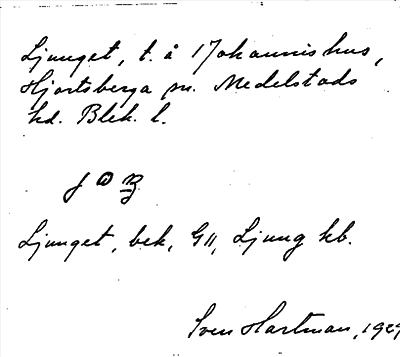 Ljunget, t. å Johannishus,
Hjortsberga sn. Medelstads
hd. Blek. l.
Ljunget, bek, G11, Ljung kb.
Sven Hartman, 1929